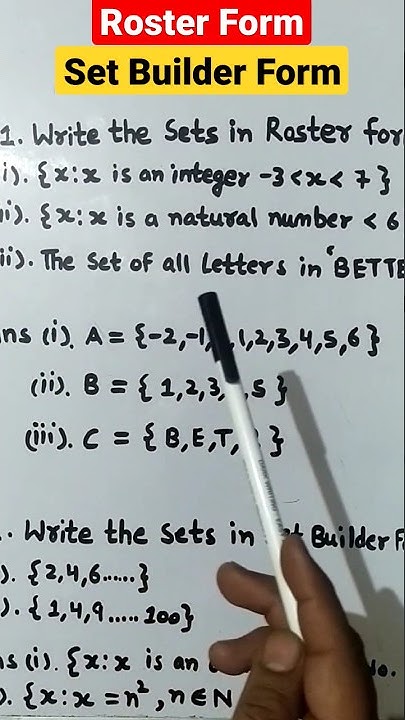 Roster Form
Set Builder Form
1. Write the Sets in Roster for
i). {x:x is an integer -3<x<7}
ii). {x:x is a natural number < 6
ii). The Set of all Letters in 'BETTE
ns (i). A = {-2,-1, ,1,2,3,4,5,6}
(ii). B = { 1,2,3, ,5 }
(iii). C = { B,E,T, }
. Write the Sets in Set Builder F
). {2,4,6......}
). {1,4,9.....100}
s (i). {x:x is an no.
). {x:x=n², n∈N